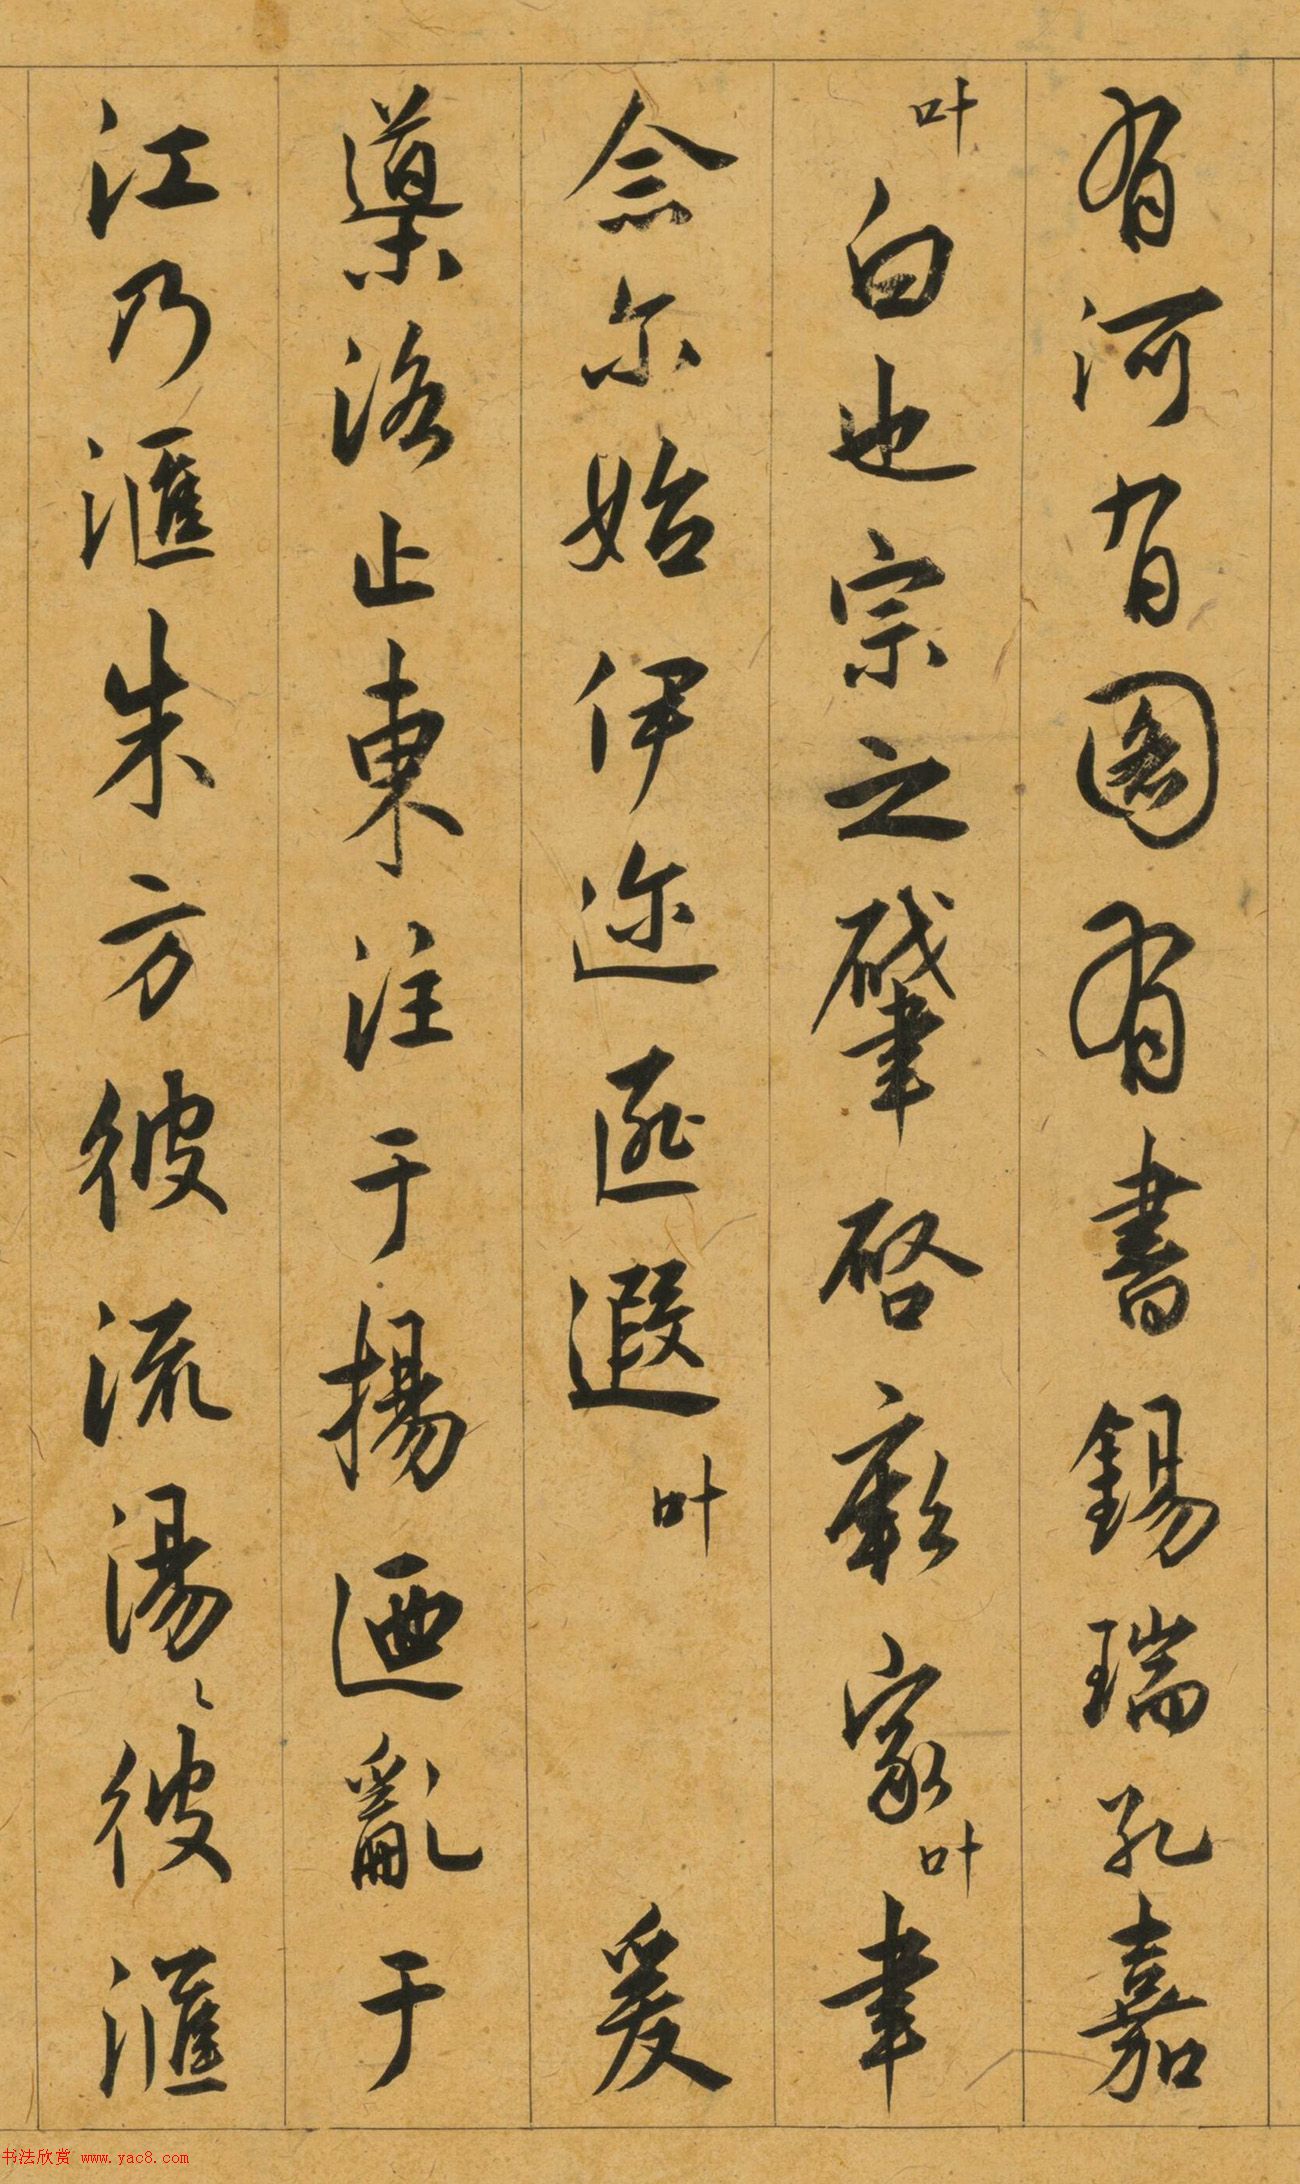 有河有图有書錫瑞孔嘉
叶白也宗之肇啓厥家叶聿
念尔始伊迩匪遐叶爰
導洛止東注于揚迺亂于
江乃滙朱方彼流湯〻彼滙
书法欣赏 www.yac8.com